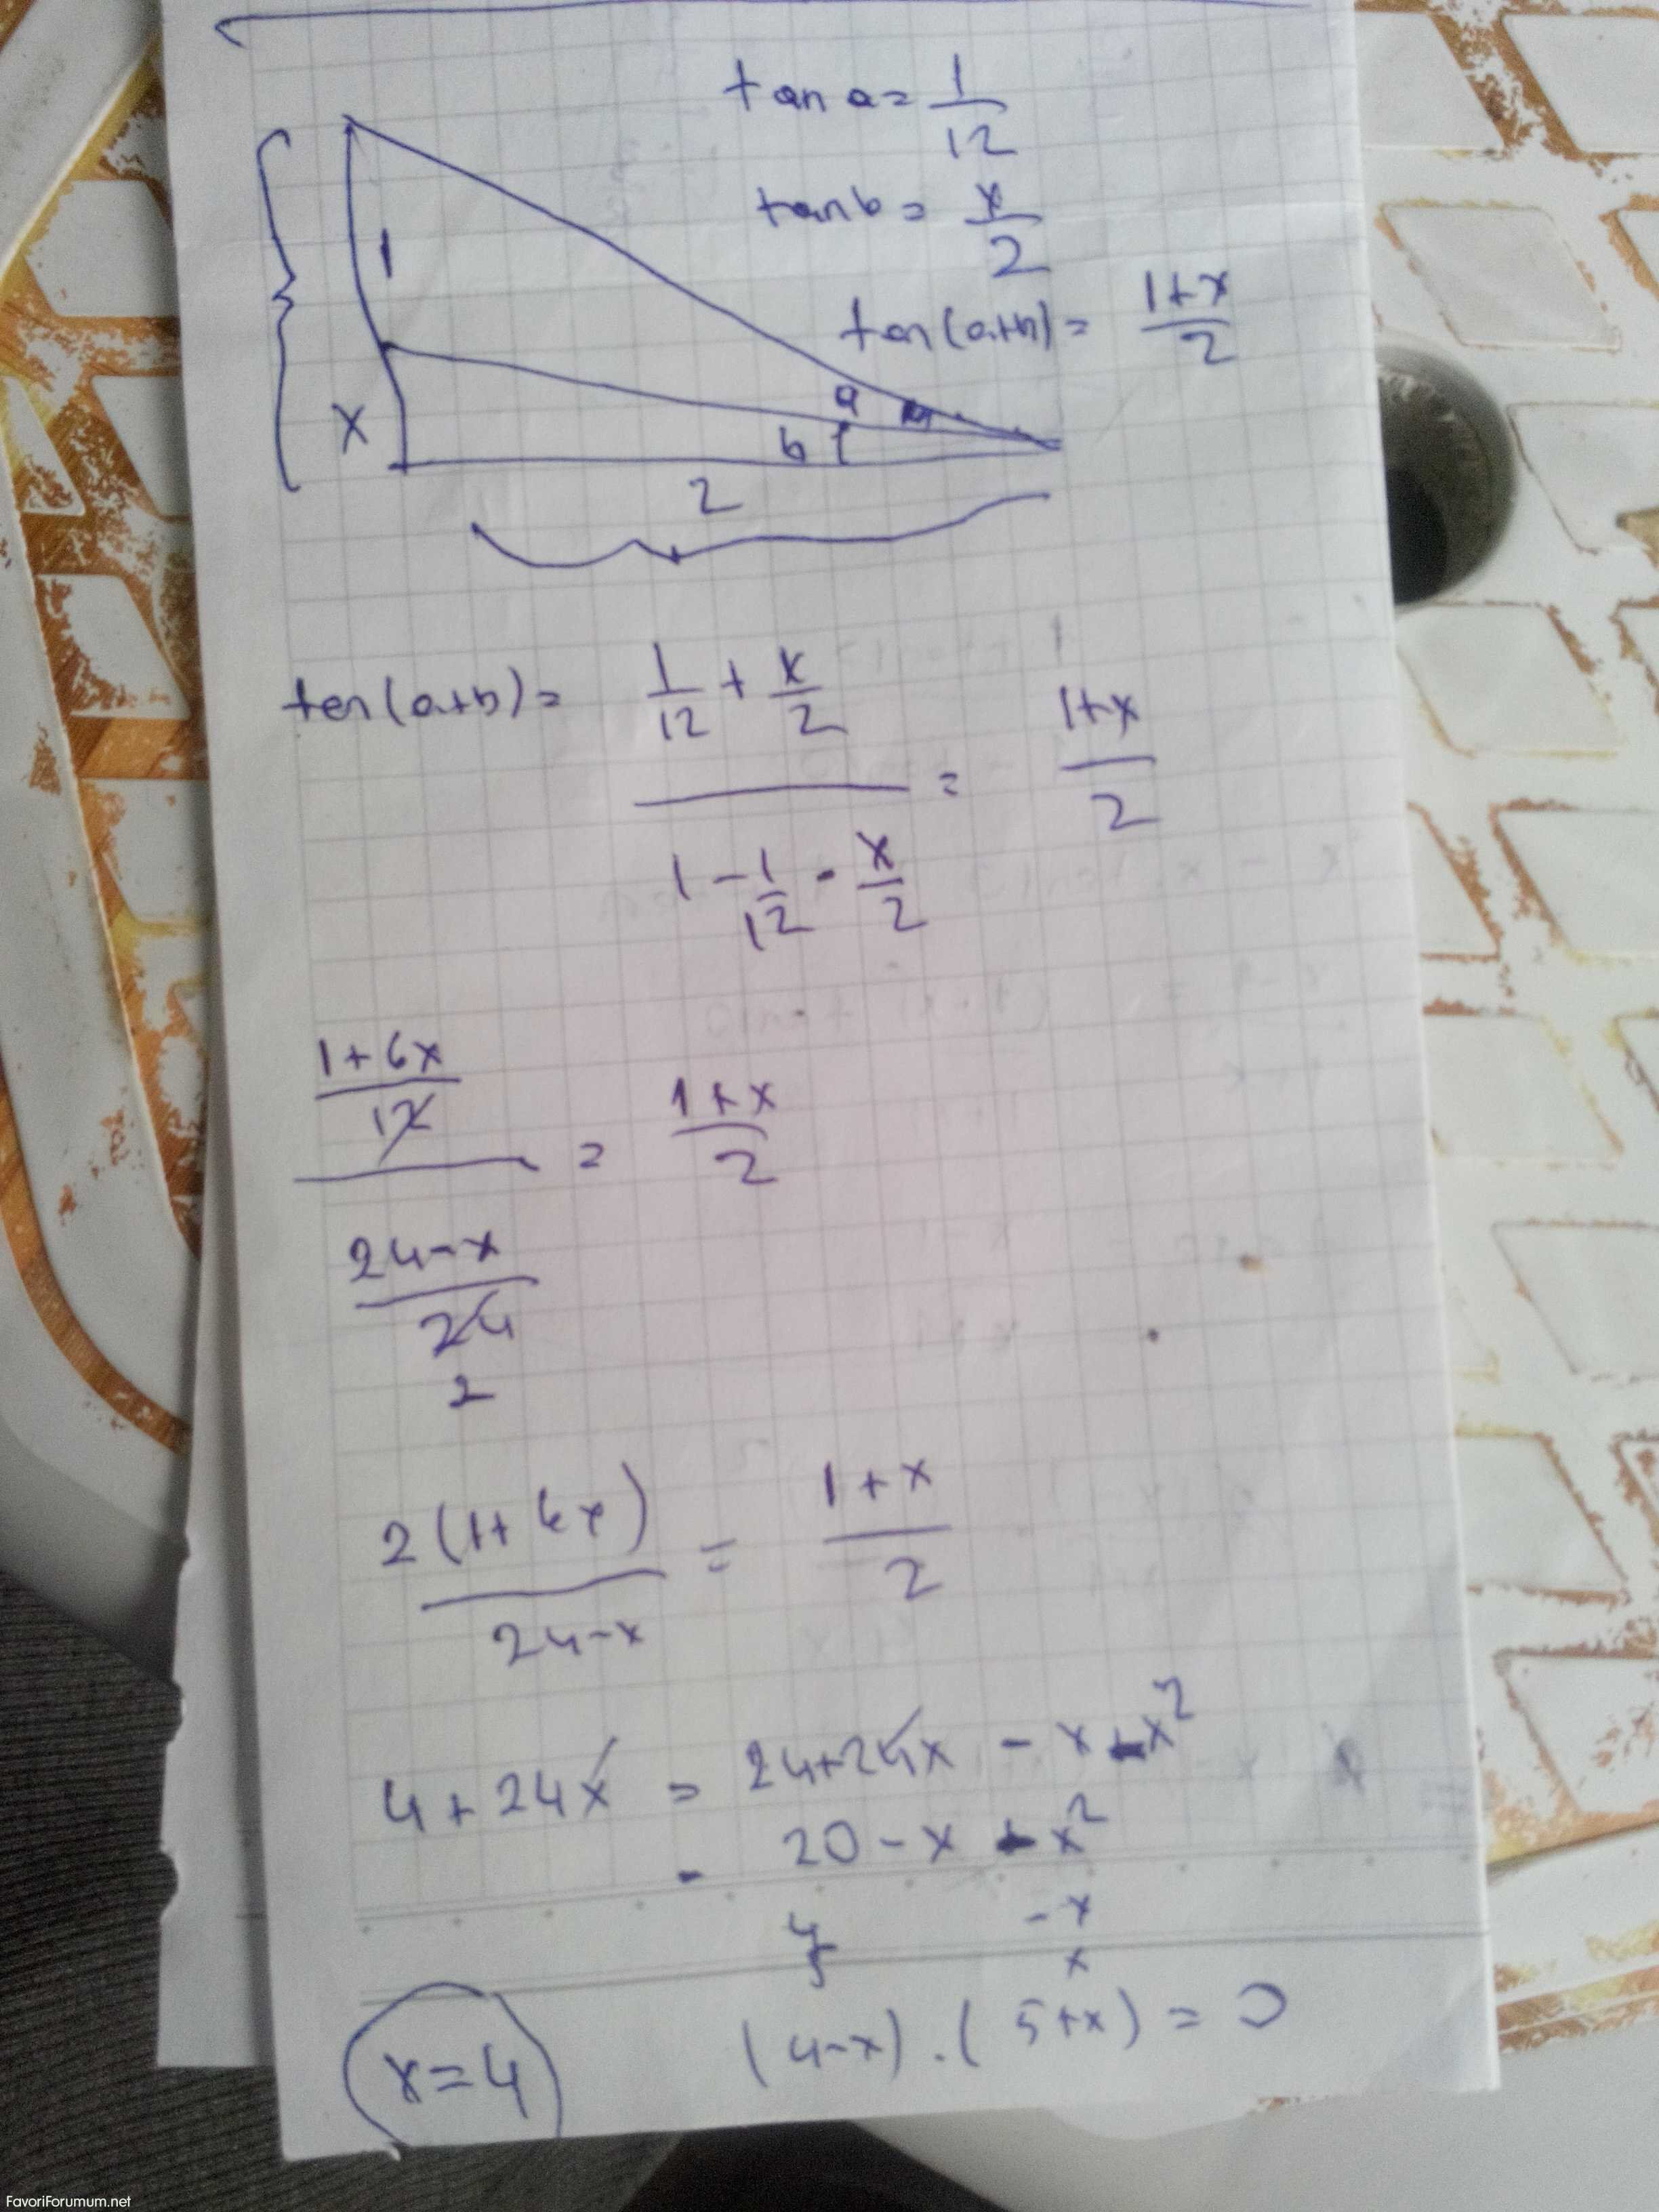 tan a = 1/12
tan b = x/2
tan(a+b) = 1+x/2
1
a
x
b
2
tan(a+b) = 1/12 + x/2 / 1 - 1/12 · x/2 = 1+x/2
1+6x/12 / 24-x/24 = 1+x/2
2
2(1+6x)/24-x = 1+x/2
4+24x = 24+24x - x - x²
- 20 - x - x²
4 -x
5 x
(4-x).(5+x) = 0
x=4
FavoriForumum.net